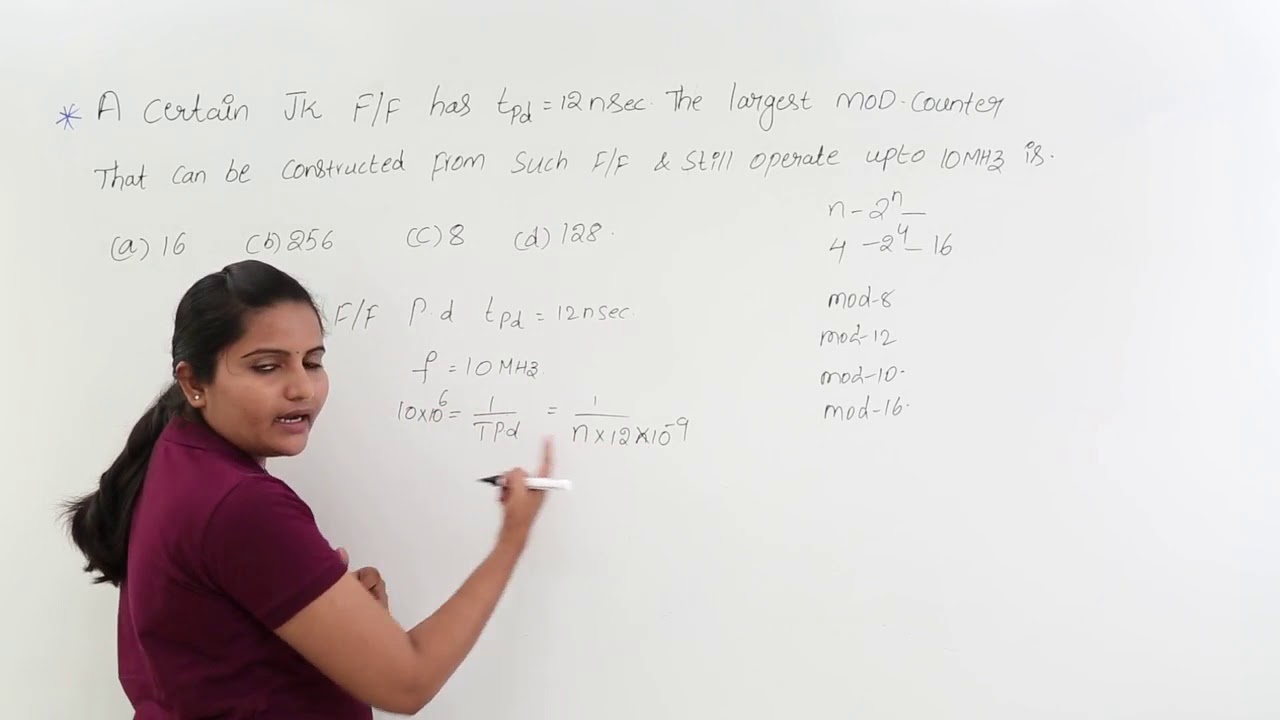 * A certain JK F/F has tpd = 12 nsec. The largest MOD-Counter
That can be constructed from such F/F & still operate upto 10 MHz is.
(a) 16 (b) 256 (c) 8 (d) 128.
n - 2ⁿ -
4 - 2⁴ - 16
F/F P.d tpd = 12nsec.
f = 10 MHz
10×10⁶ = 1/TPd = 1/n×12×10⁻⁹
mod-8
mod-12
mod-10.
mod-16.